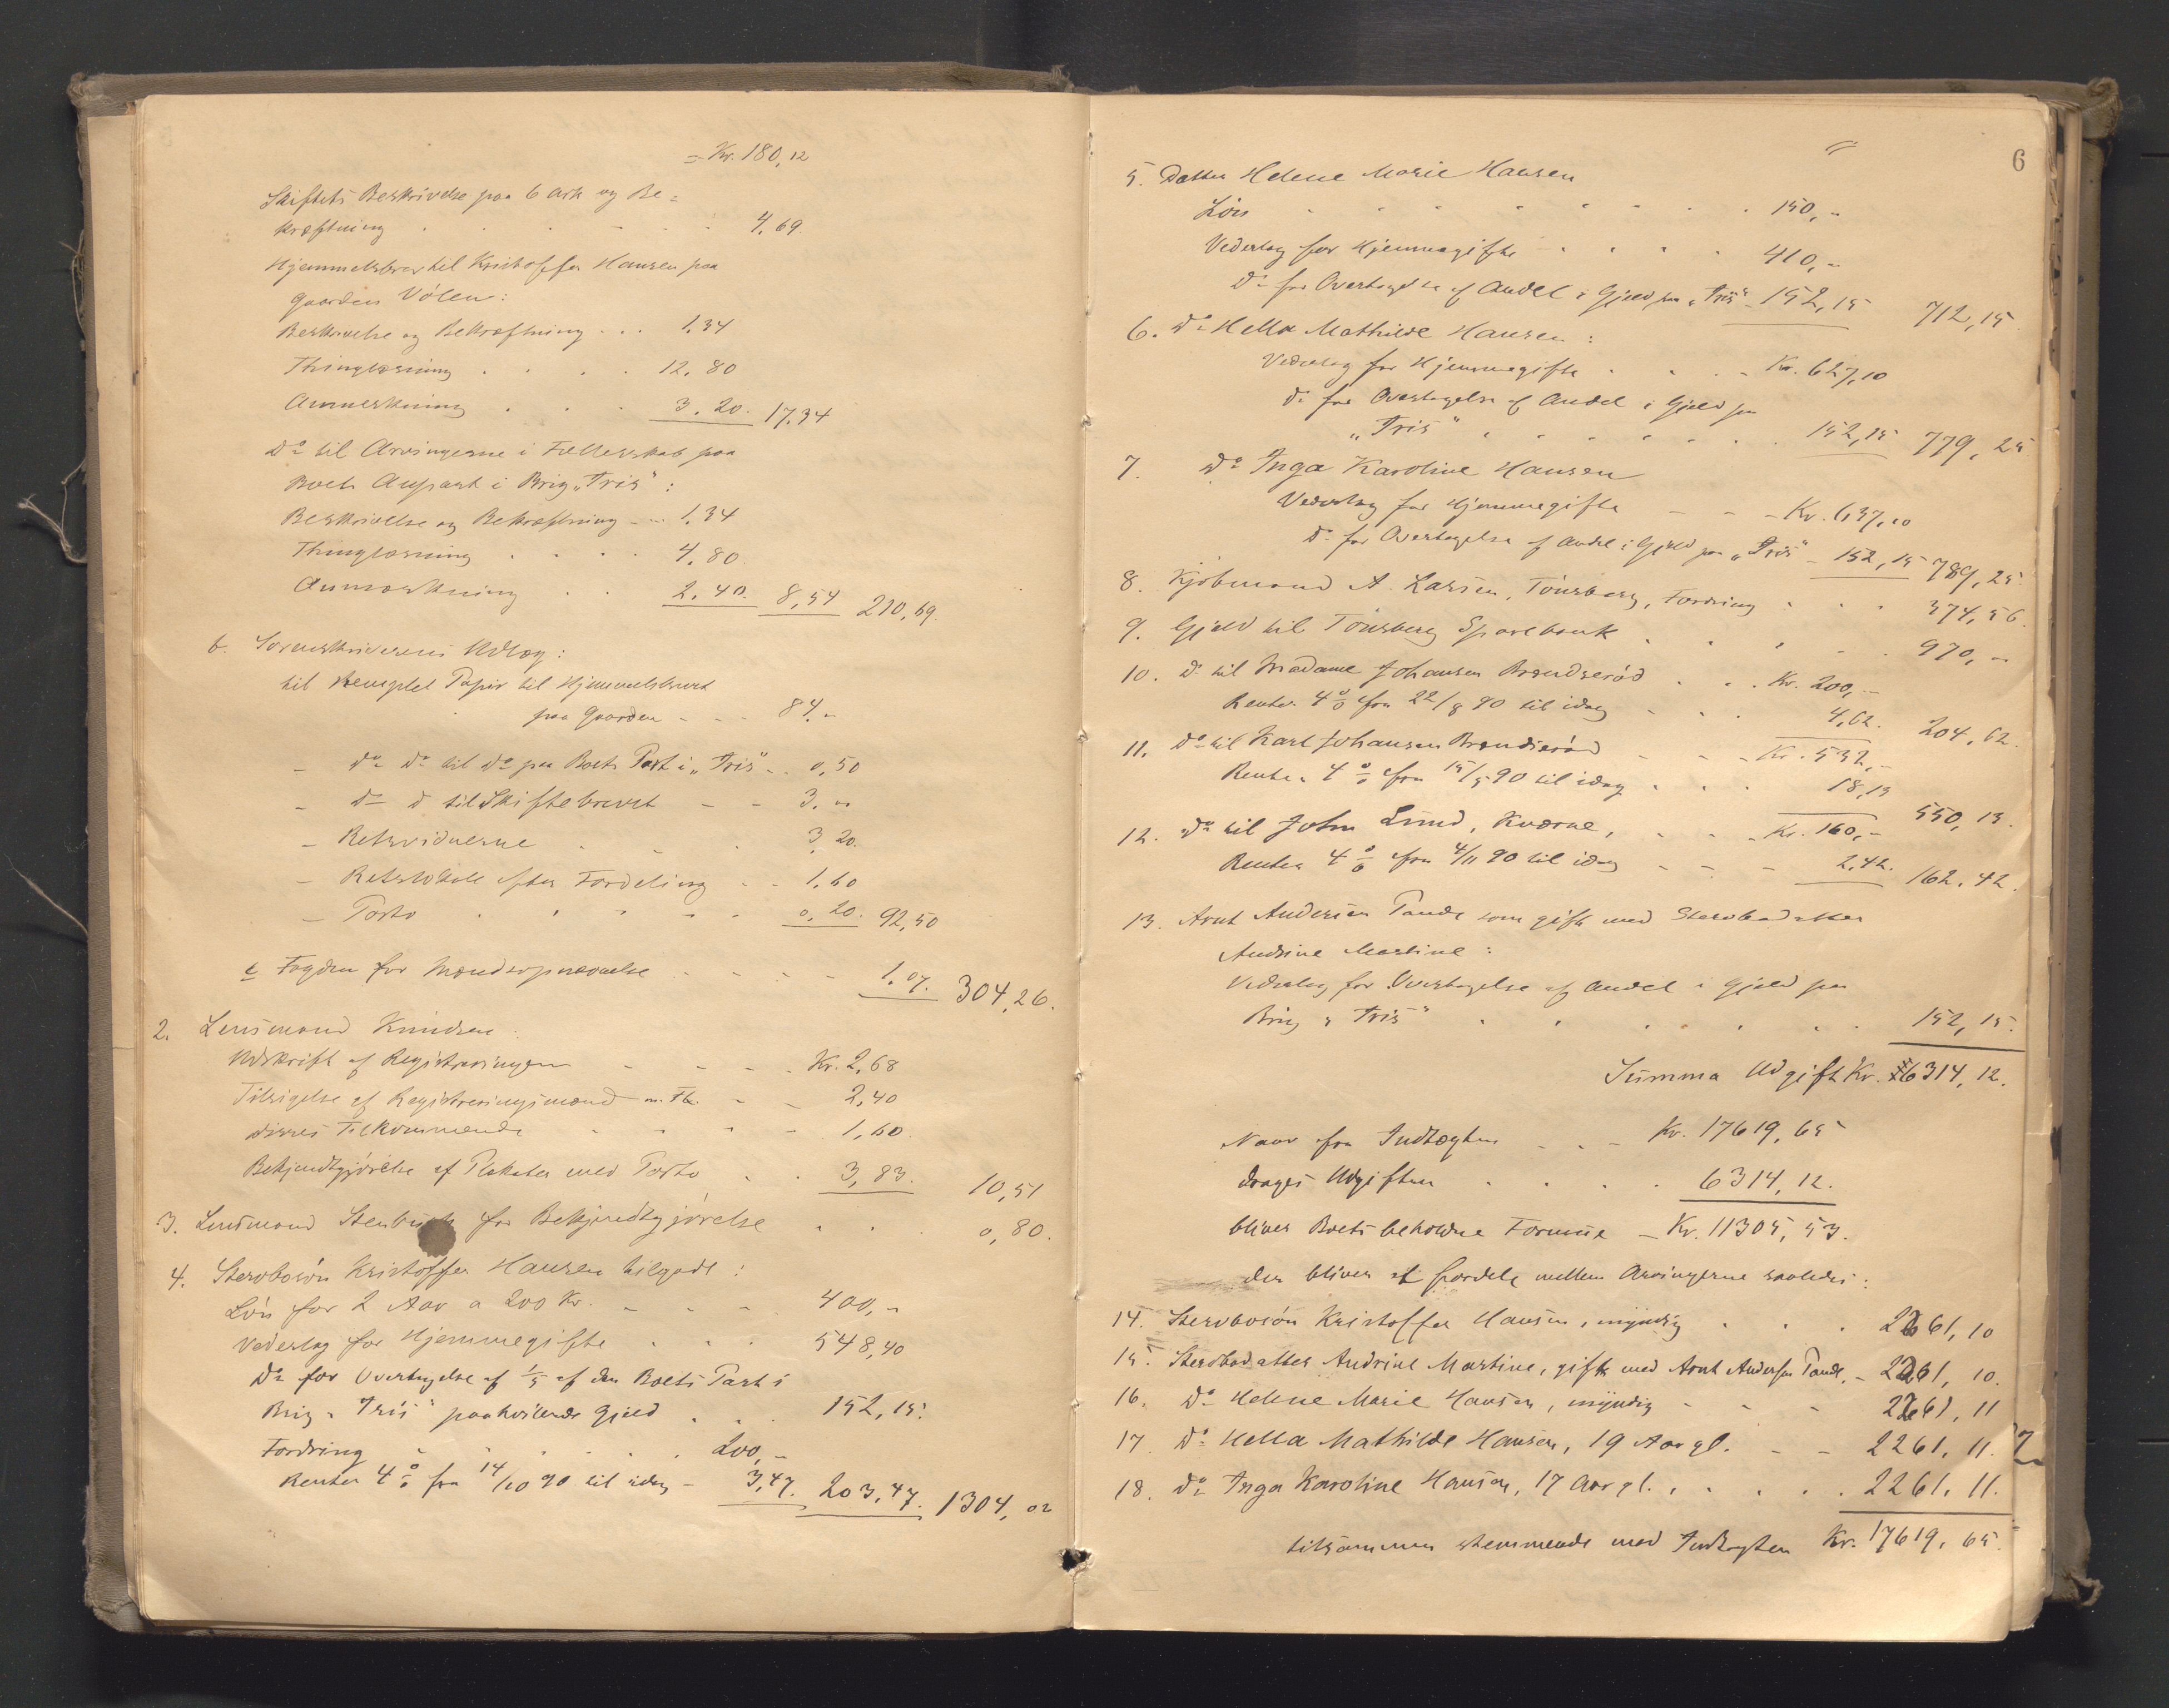 = Kr. 180,12
Skiftets Beskrivelse paa 6 Ark og Be=
kræftning 4,69
Hjemmelsbrev til Kristoffer Hansen paa
Gaarden Vølen:
Beskrivelse og Bekræftning 1,34
Thinglæsning 12,80
Anmerkning 3,20. 17,34
Do til Arvingerne i Fællesskab paa
Boets Anpart i Brig „Iris":
Beskrivelse og Bekræftning 1,34
Thinglæsning 4,80.
Anmærkning 2,40. 8,54 210,69.
b. Sorenskriverens Udlæg:
til stemplet Papir til Hjemmelsbrevet
paa Gaarden 84,-
- do do til do paa Boets Part i „Iris" 0,50
- do do til Skiftebrevet 3,00
- Retsvidnerne 3,20.
- Retslokale efter Fordeling 1,60
- Porto 0,20. 92,50
c Fogden for Mændsopnævnelse 1,07. 304,26.
2. Lensmand Knudsen:
Udskrift af Registreringen Kr. 2,68
Tilsigelse af Registreringsmænd m. Fl. 2,40
disses Tilkommende 1,60.
Bekjendtgjørelse af Plakater med Porto 3,83. 10,51
3. Lensmand Stenbuch for Bekjendtgjørelse 0,80.
4. Stervbosøn Kristoffer Hansen tilgode:
Løn for 2 Aar a 200 Kr. 400,-
Vederlag for Hjemmegifte 548,40
Do for Overtagelse af 1/5 af den Boets Part i
Brig „Iris" paahvilende Gjeld 152,15.
Fordring 200,-
Renter 4 % fra 14/10 90 til idag - 3,47. 203,47. 1304,02
6
5. Datter Helene Marie Hansen
Løn 150,-
Vederlag for Hjemmegifte 410,-
Do for Overtagelse af Andel i Gjeld paa „Iris" 152,15 712,15
6. Do Hella Mathilde Hansen:
Vederlag for Hjemmegifte Kr. 627,10
do for Overtagelse af Andel i Gjeld paa
„Iris" 152,15 779,25
7. Do Inga Karoline Hansen
Vederlag for Hjemmegifte Kr. 637,10
Do for Overtagelse af Andel i Gjeld paa „Iris" 152,15 789,25.
8. Kjøbmand A. Larsen, Tønsberg, Fordring 374,56.
9. Gjeld til Tønsberg Sparebank 970,-
10. Do til Madame Johansen Brændserød Kr. 200,-
Renter 4 % fra 22/8 90 til idag 4,62. 204,62.
11. Do til Karl Johansen Brændserød Kr. 532,-
Renter 4 % fra 15/5 90 til idag 18,13 550,13.
12. do til John Lund, Kværne, Kr. 160,-
Renter 4 % fra 4/11 90 til idag 2,42. 162,42.
13. Arnt Andersen Tande som gift med Stervbodatter
Andrine Martine:
Vederlag for Overtagelse af Andel i Gjeld paa
Brig „Iris" 152,15.
Summa Udgift Kr. 6314,12.
Naar fra Indtægten Kr. 17619,65
drages Udgiften 6314,12.
bliver Boets beholdne Formue - Kr. 11305,53.
der bliver at fordele mellem Arvingerne saaledes:
14. Stervbosøn Kristoffer Hansen, myndig 2261,10
15. Stervbodatter Andrine Martine, gift med Arnt Andersen Tande, - 2261,10.
16. Do Helene Marie Hansen, myndig 2261,11
17. Do Hella Mathilde Hansen, 19 Aar gl. 2261,11.
18. Do Inga Karoline Hansen, 17 Aar gl. 2261,11.
tilsammen stemmende med Indtægten Kr. 17619,65.